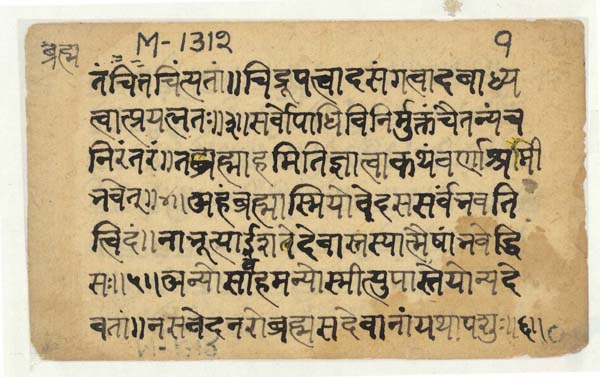 ब्रह्म M-1312 १
तं चित चिंत्यतां॥ चिद्रूपत्वादसंगत्वादबाध्य
त्वात्प्रयत्नतः॥३॥ सर्वोपाधिविनिर्मुक्तं चैतन्यं च
निरंतरं॥ तद्ब्रह्माहमिति ज्ञात्वा कथं वर्णाश्रमी
भवेत्॥४॥ अहं ब्रह्मास्मि यो वेद स सर्वं भवति
त्विदं॥ नाभूत्या ईशते देवास्तस्यात्मैषां भवेद्धि
सः॥५॥ अन्योसावहमन्योस्मीत्युपास्ते योन्यदे
वतां॥ न स वेद नरो ब्रह्म स देवानां यथा पशुः॥६॥